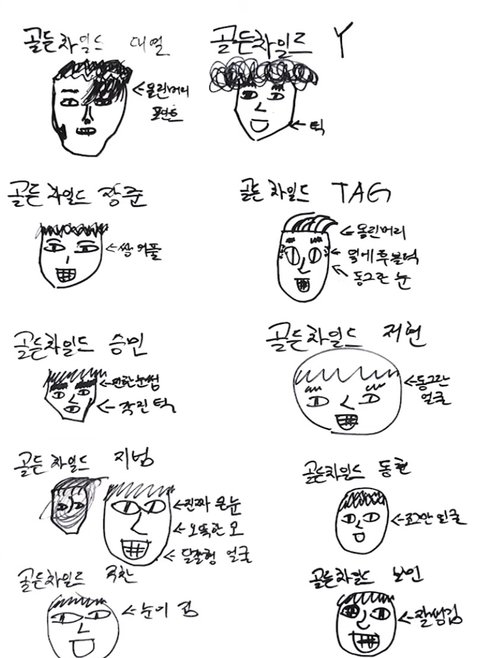 골든차일드 대열
올린머리
포인트
골든차일드 Y
턱
골든차일드 장준
쌍커풀
골든차일드 TAG
올린머리
옆에 투블럭
동그란 눈
골든차일드 승민
진한눈썹
작은 턱
골든차일드 재현
동그란
얼굴
골든차일드 지범
진짜 큰눈
오똑한 코
달걀형 얼굴
골든차일드 동현
조그만 얼굴
골든차일드 주찬
눈이 김
골든차일드 보민
잘생김